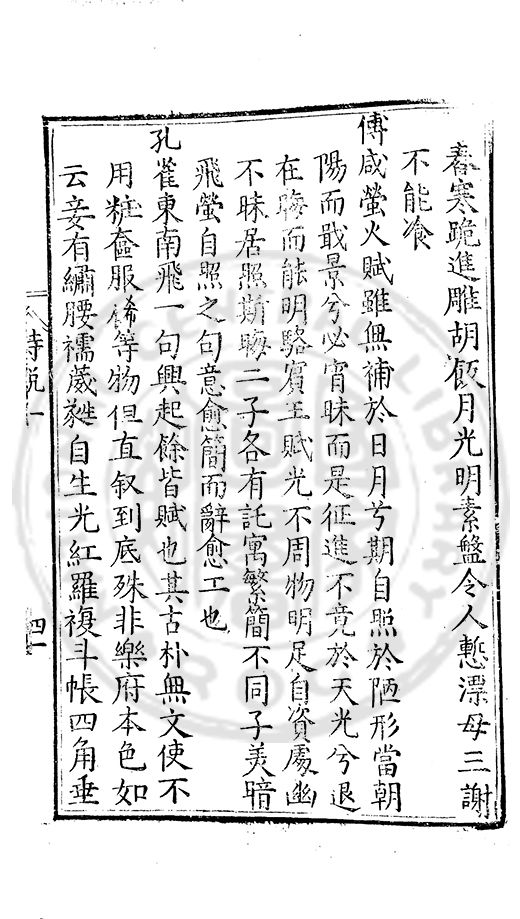 舂寒跪進雕胡飯月光明素盤令人慙漂母三謝
不能飡
傅咸螢火賦雖無補於日月兮期自照於陋形當朝
陽而戢景兮必宵昧而是征進不竟於天光兮退
在晦而能明駱賓王賦光不周物明足自資處幽
不昧居照斯晦二子各有託寓繁簡不同子美暗
飛螢自照之句意愈簡而辭愈工也
孔雀東南飛一句興起餘皆賦也其古朴無文使不
用粧奩服飾等物但直叙到底殊非樂府本色如
云妾有繡腰襦葳蕤自生光紅羅複斗帳四角垂
詩說一
四